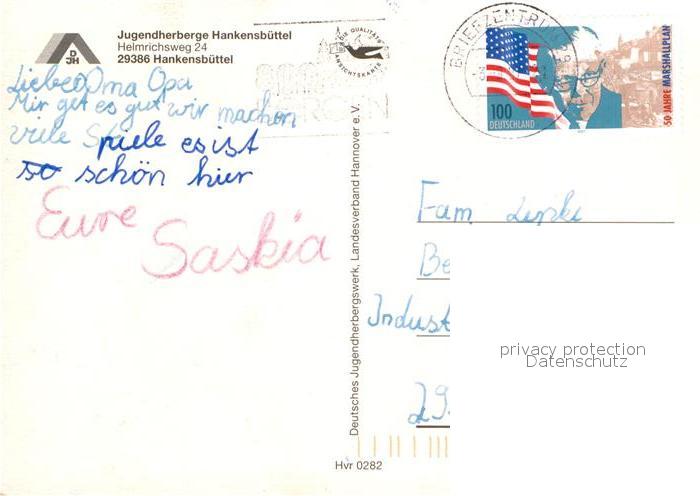 Jugendherberge Hankensbüttel
Helmrichsweg 24
29386 Hankensbüttel
DJH
DIE QUALITÄTS
ANSICHTSKARTE
Liebe Oma Opa
Mir get es gut wir machen
viele Spiele es ist
so schön hier
Eure
Saskia
Deutsches Jugendherbergswerk, Landesverband Hannover e. V.
Hvr 0282
BRIEFZENTRUM
100
DEUTSCHLAND
50 JAHRE MARSHALLPLAN
Fam
Be
Indust
29
privacy protection
Datenschutz